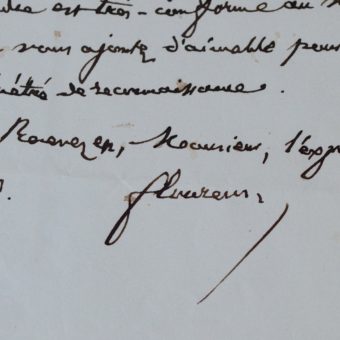 est très-conforme au
vous ajoutez d'aimable pour
pénétré de reconnaissance.
Recevez, Monsieur, l'exp
flourens